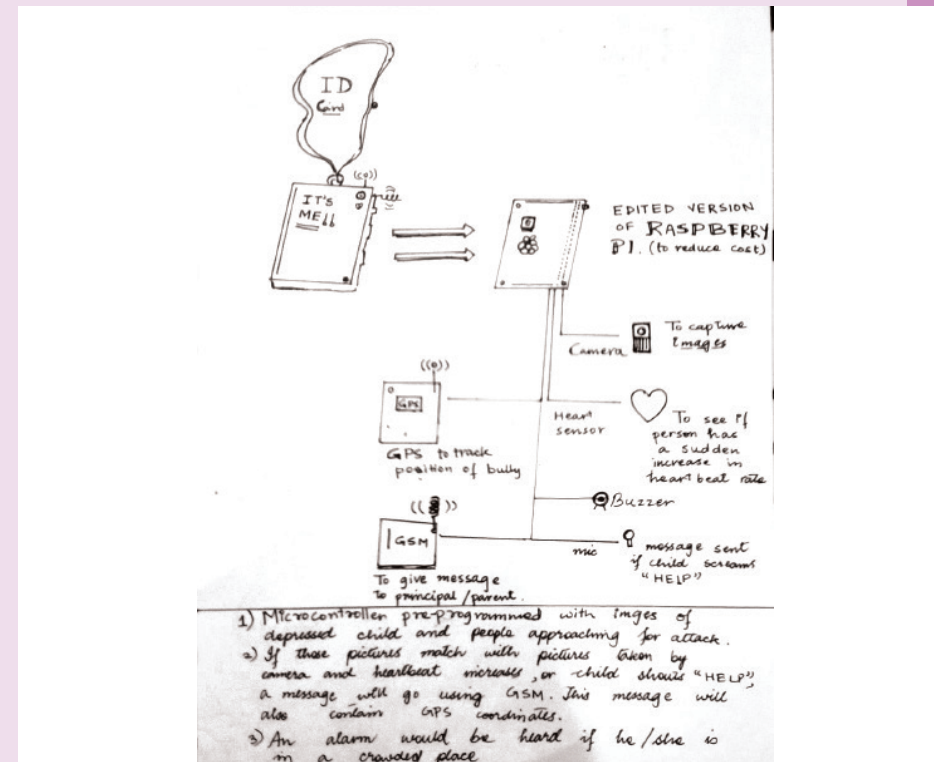 ID
Card
IT'S
ME!!
EDITED VERSION
OF RASPBERRY
PI. (to reduce cost)
To capture
images
Camera
GPS
Heart
sensor
To see if
person has
a sudden
increase in
heart beat rate
GPS to track
position of bully
Buzzer
GSM
mic
message sent
if child screams
"HELP"
To give message
to principal/parent.
1) Microcontroller pre-programmed with imges of
depressed child and people approaching for attack.
2) If these pictures match with pictures taken by
camera and heartbeat increases, or child shouts "HELP",
a message will go using GSM. This message will
also contain GPS coordinates.
3) An alarm would be heard if he/she is
in a crowded place